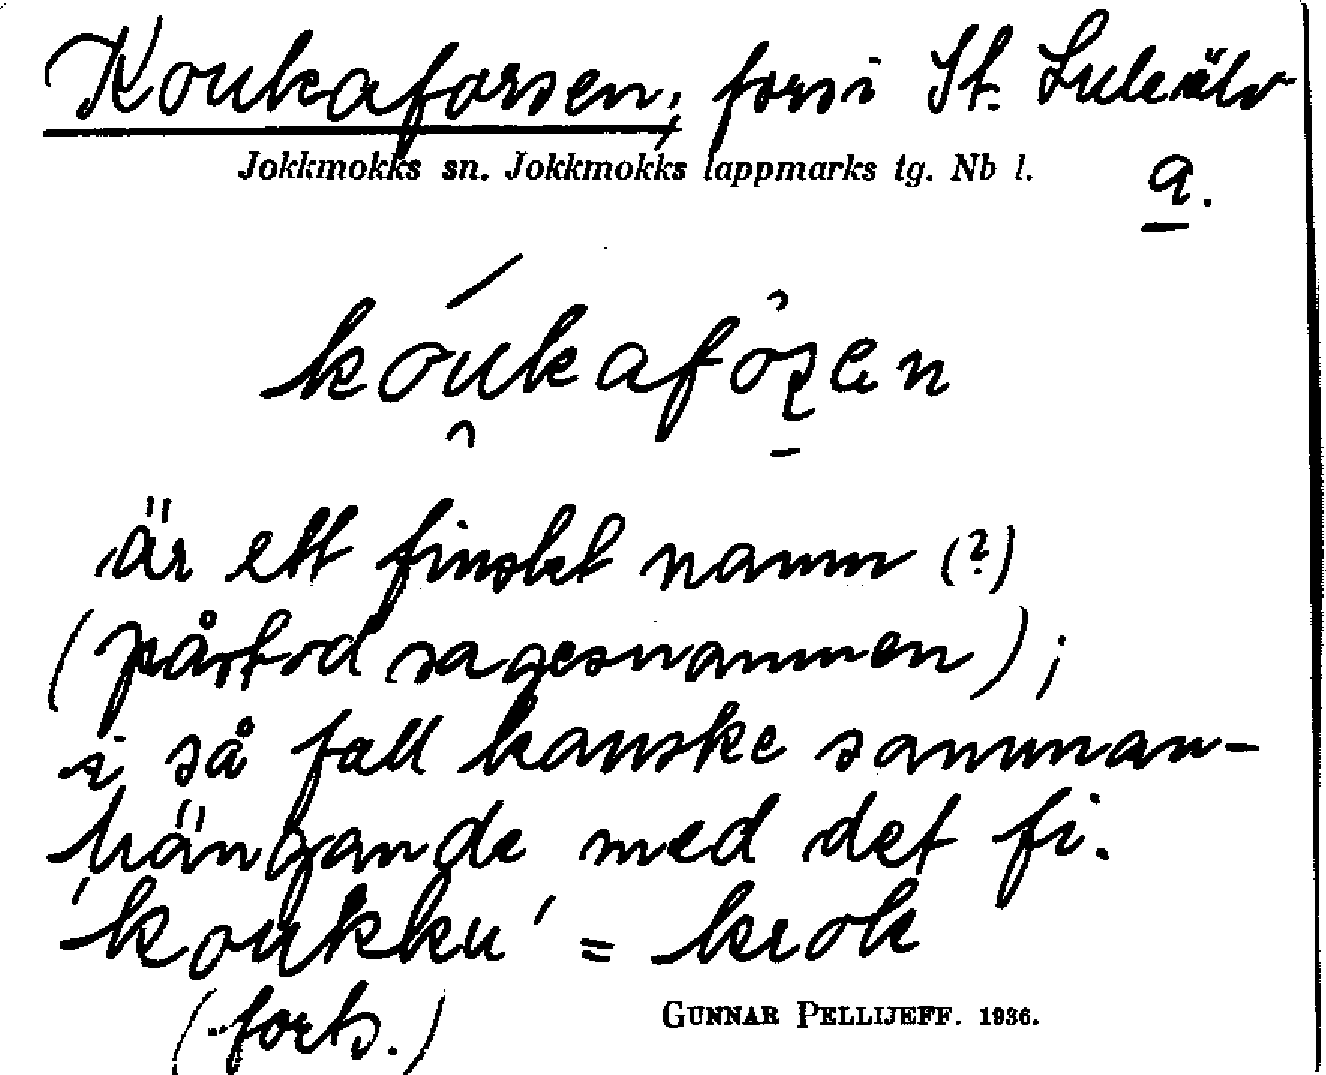 Koukaforsen, fors i St. Luleälv
Jokkmokks sn. Jokkmokks lappmarks tg. Nb l.
a.
koukafoʂen
är ett finskt namn (?)
(påstod sagesmannen);
i så fall kanske samman-
hängande med det fi.
'koukku' = krok
(forts.)
GUNNAR PELLIJEFF. 1936.